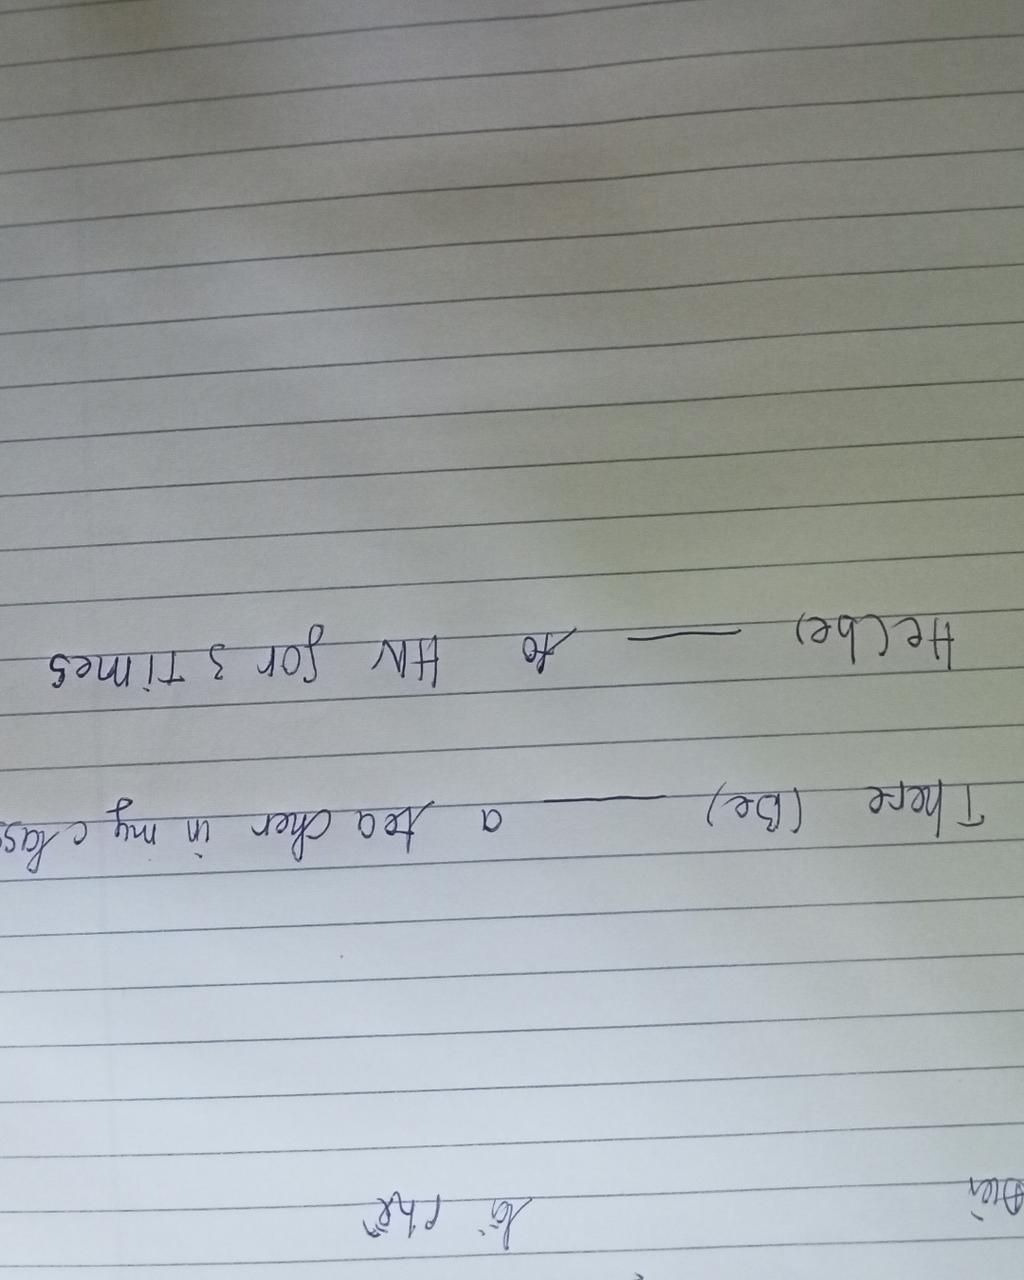 There (Be) ___ a teacher in my class
He(be) ___ to HN for 3 Times